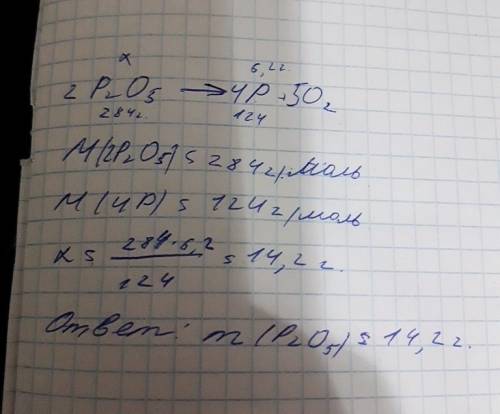 x 6,2 г.
2 P₂O₅ → 4P + 5O₂
284г. 124
M(2P₂O₅) = 284 г/моль
M(4P) = 124 г/моль
x = 284·6,2 / 124 = 14,2 г.
Ответ: m(P₂O₅) = 14,2 г.